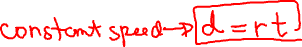 constant speed → d = rt